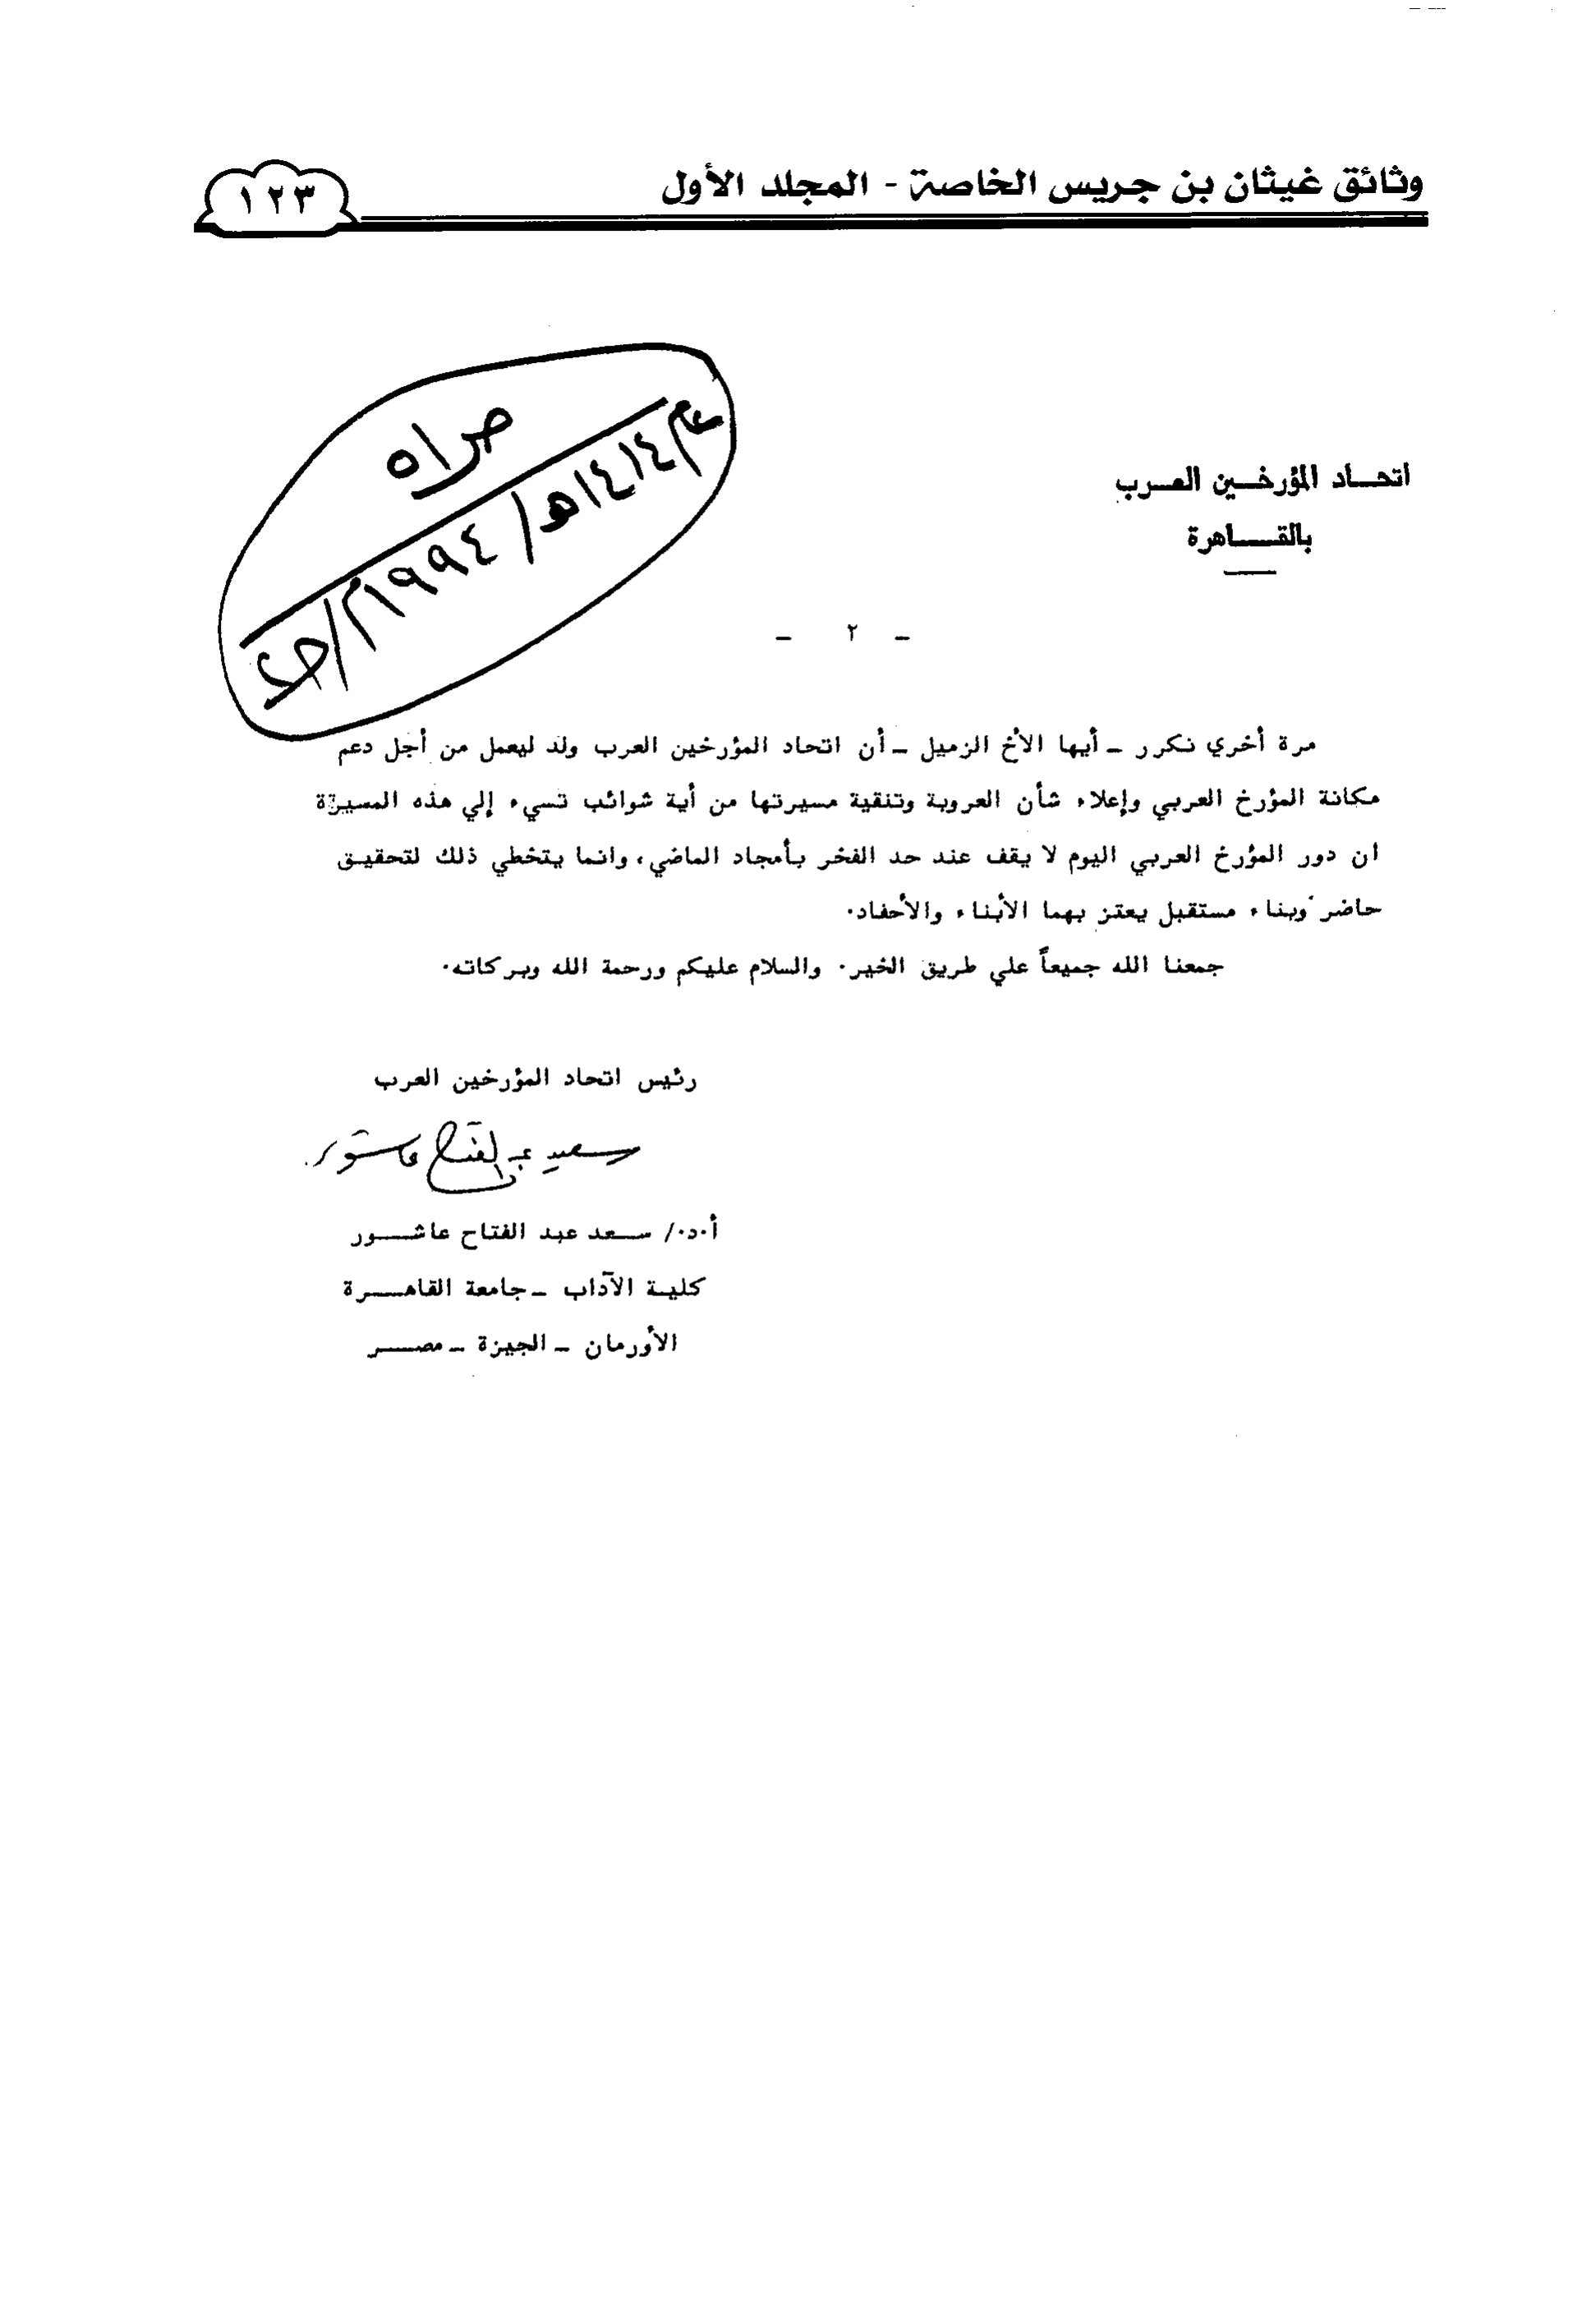 وثائق غيثان بن جريس الخاصة - المجلد الأول
١٢٣
اتحاد المؤرخين العرب
بالقاهرة
عام ١٤١٤هـ / ١٩٩٤م /
- ٢ -
مرة أخري نكرر - أيها الأخ الزميل - أن اتحاد المؤرخين العرب ولد ليعمل من أجل دعم
مكانة المؤرخ العربي وإعلاء شأن العروبة وتنقية مسيرتها من أية شوائب تسيء إلي هذه المسيرة
ان دور المؤرخ العربي اليوم لا يقف عند حد الفخر بأمجاد الماضي، وانما يتخطي ذلك لتحقيق
حاضر وبناء مستقبل يعتز بهما الأبناء والأحفاد.
جمعنا الله جميعاً علي طريق الخير. والسلام عليكم ورحمة الله وبركاته.
رئيس اتحاد المؤرخين العرب
سعيد عبد الفتاح عاشور
أ.د./ سعد عبد الفتاح عاشور
كلية الآداب - جامعة القاهرة
الأورمان - الجيزة - مصر